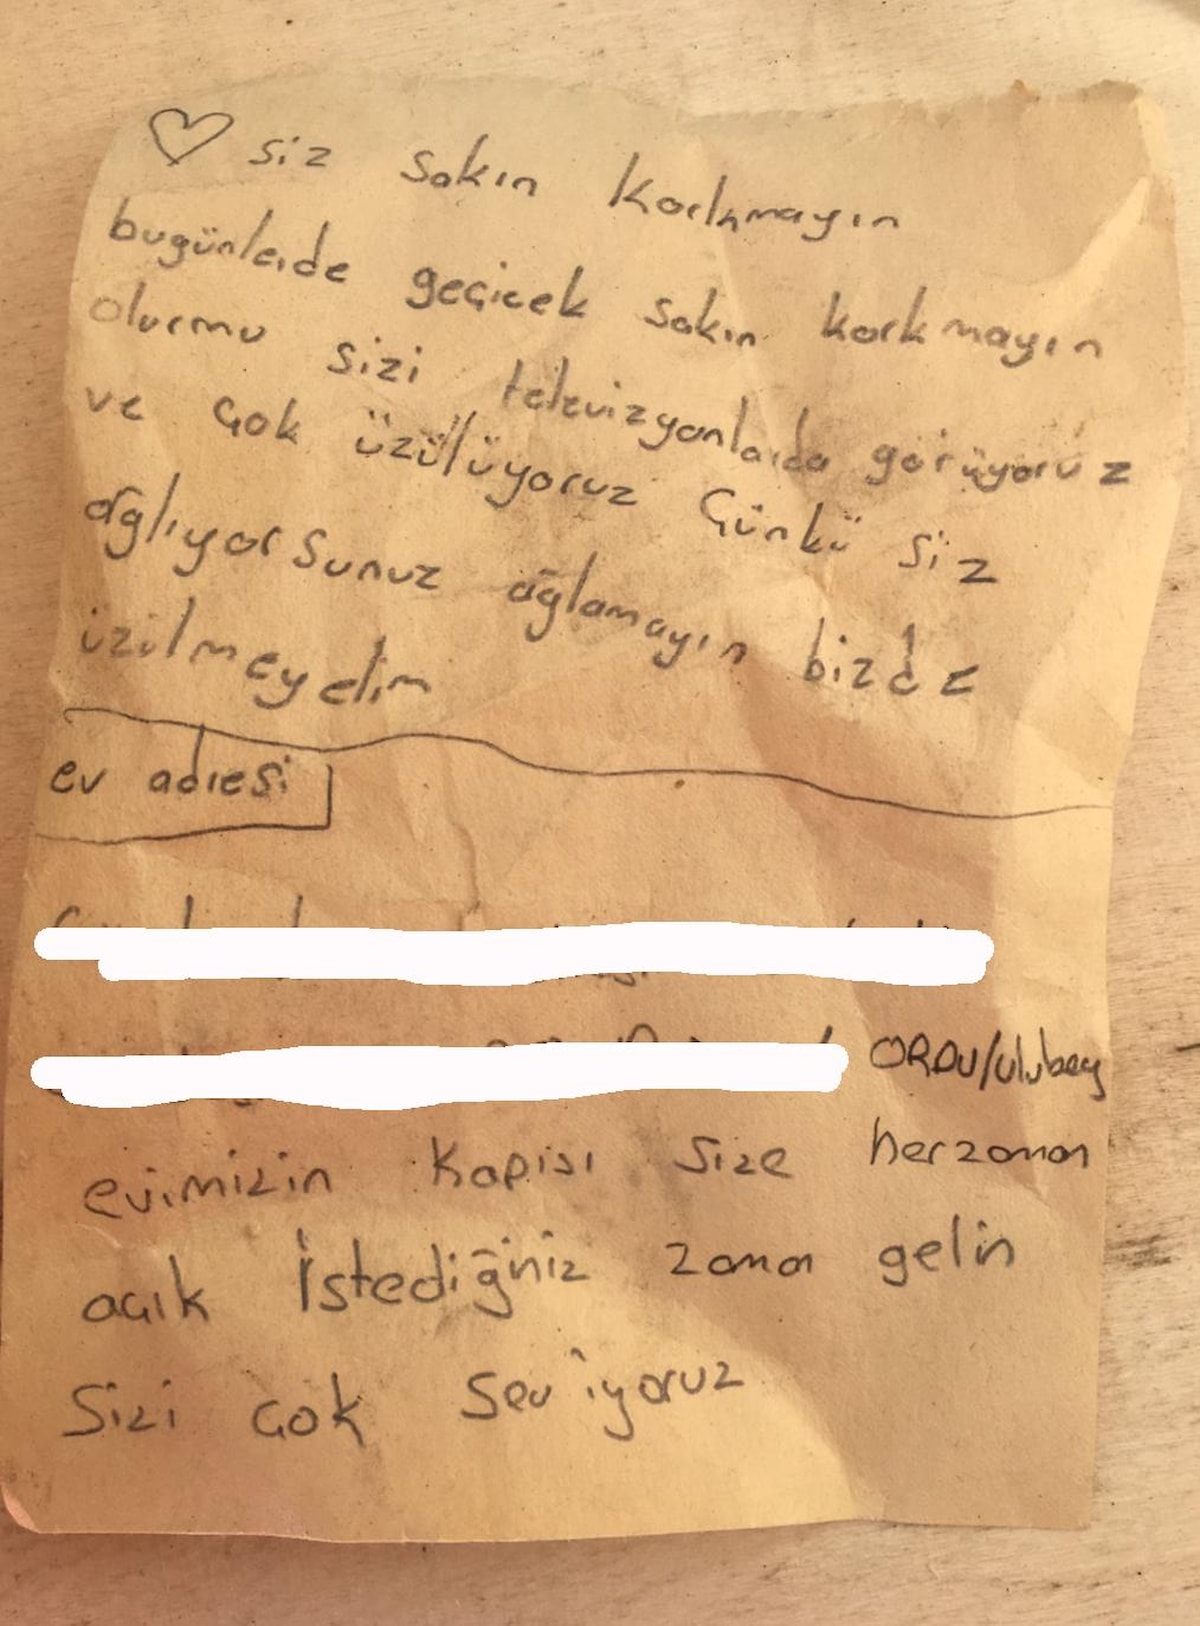 siz sakın korkmayın
bugünlerde geçicek sakın korkmayın
olurmu sizi televizyonlarda görüyoruz
ve çok üzülüyoruz çünkü siz
ağlıyorsunuz ağlamayın bizde
üzülmeyelim
ev adresi
ORDU/ulubey
evimizin kapısı size herzaman
açık İstediğiniz zaman gelin
Sizi çok seviyoruz